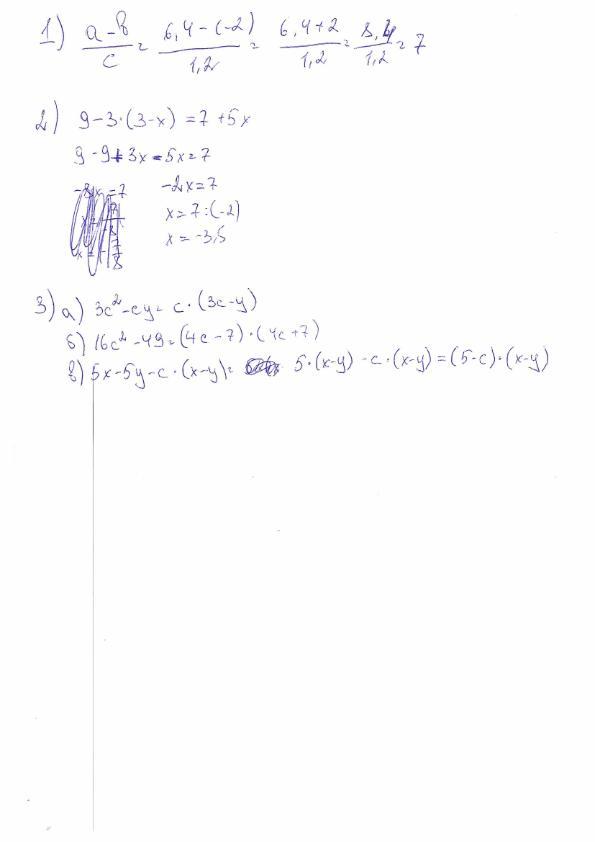 1) (a-b)/c = (6,4-(-2))/1,2 = (6,4+2)/1,2 = 8,4/1,2 = 7
2) 9-3·(3-x) = 7+5x
9-9+3x-5x=7
-2x=7
x=7:(-2)
x=-3,5
3) а) 3c²-cy= c·(3c-y)
б) 16c²-49=(4c-7)·(4c+7)
в) 5x-5y-c·(x-y)= 5·(x-y)-c·(x-y)=(5-c)·(x-y)